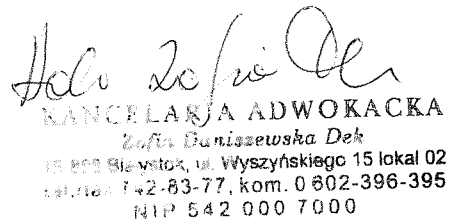 Zofia
KANCELARJA ADWOKACKA
Zofia Daniszewska Dek
Białystok, ul. Wyszyńskiego 15 lokal 02
742-83-77, kom. 0 602-396-395
NIP 542 000 7000